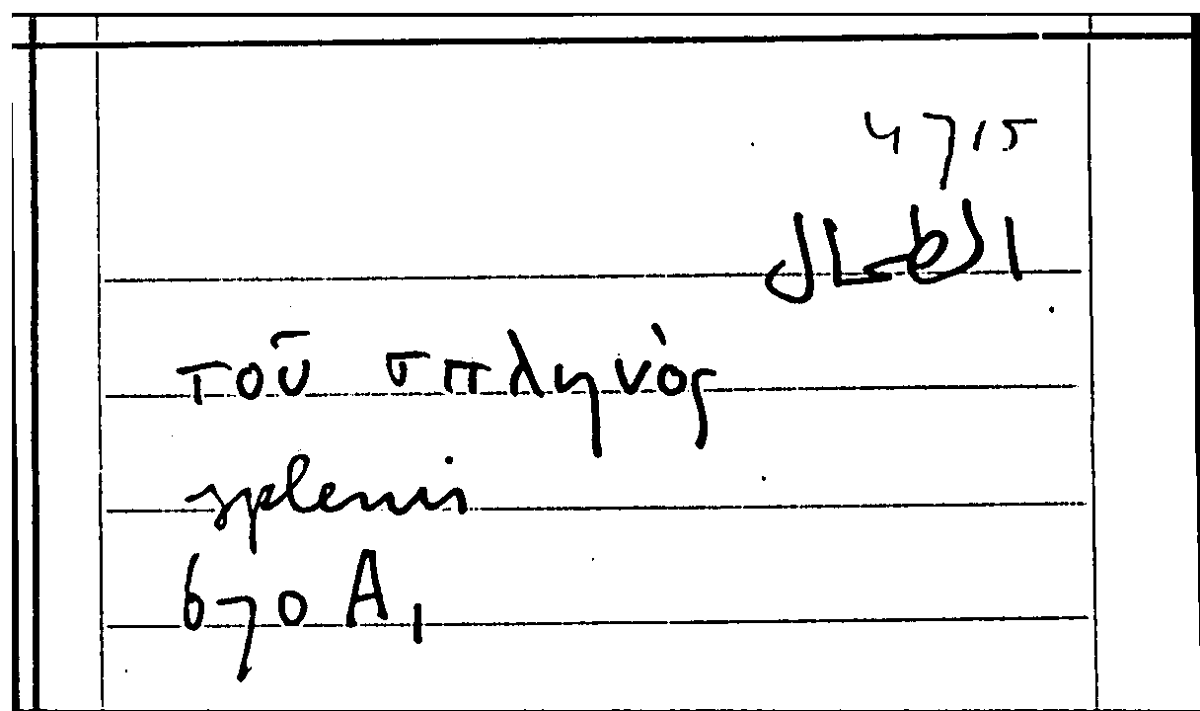 4715
الطحال
τοῦ σπληνὸς
splenis
670 A,